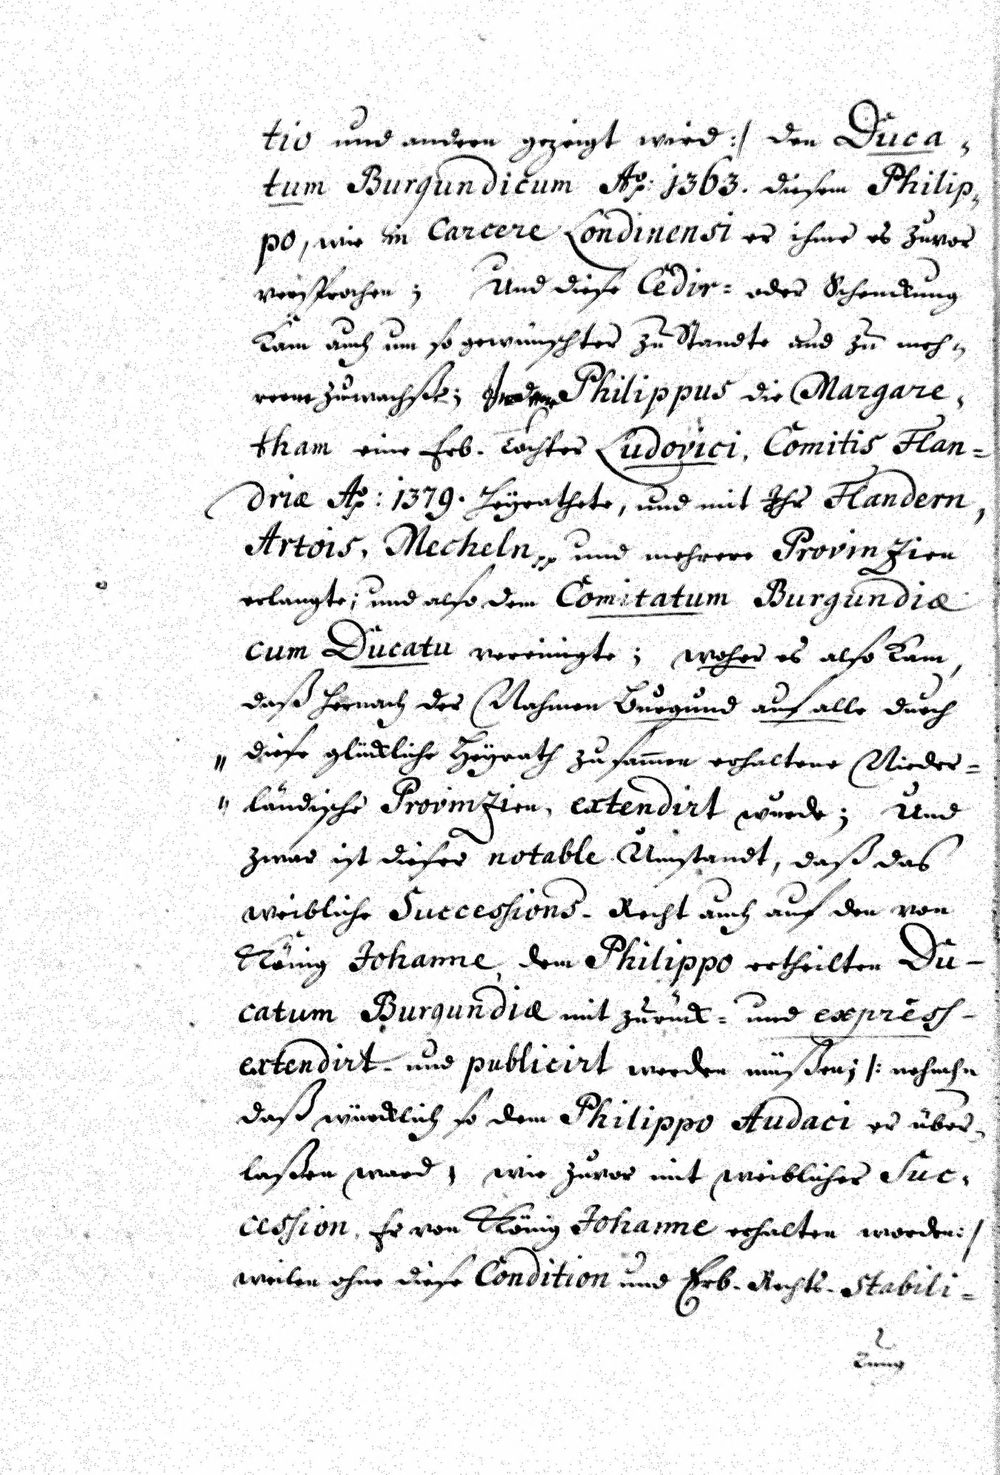 tio und andern gezeigt wird :/ den Duca-
tum Burgundicum Ao: 1363. diesem Philip-
po, wie in Carcere Londinensi er ihme es zuvor
versprochen; Und diese Cedir= oder Schenckung
kam auch um so gewünschter zu Standte und zu meh-
rerer zuwachse; Philippus die Margare-
tham eine Erb-Tochter Ludovici, Comitis Flan=
driæ Ao: 1379. heyrathete, und mit Ihr Flandern,
Artois, Mecheln, und mehrere Provinzien
erlangte; und also dem Comitatum Burgundiæ
cum Ducatu vereinigte; woher es also kam,
daß hernach der Nahmen Burgund auf alle durch
" diese glückliche Heyrath zusammen erhaltene Nieder=
" ländische Provinzien, extendirt wurde; Und
zwar ist dieser notable Umstandt, daß das
weibliche Successions-Recht auch auf den von
König Johanne, dem Philippo ertheilten Du-
catum Burgundiæ mit zurück= und express-
extendirt- und publicirt werden müßen; /: nehmen
daß würcklich so dem Philippo Audaci er über-
laßen ward, wie zuvor mit weiblicher Suc-
cession, Er von König Johanne erhalten worden :/
weilen ohne diese Condition und Erb-Rechts-Stabili=
tung